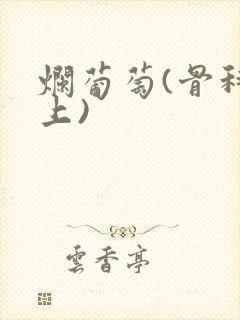 爛葡萄(骨科
上)
雲香亭